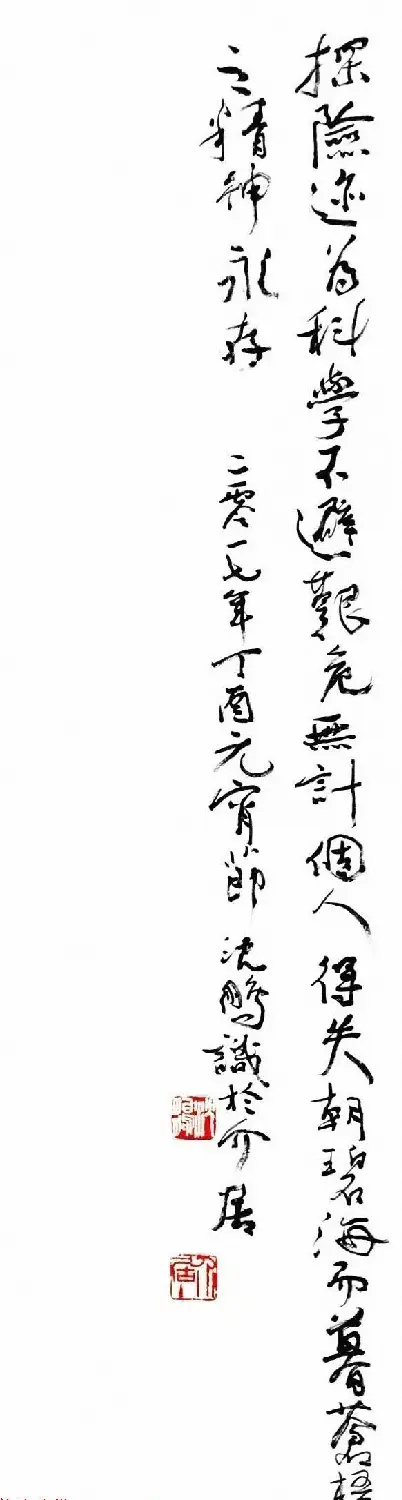 探險迹为科學不避艱危無計個人得失朝碧海而暮蒼梧
之精神永存 二零一七年丁酉元宵節沈鵬識於介居
沈鵬
介居